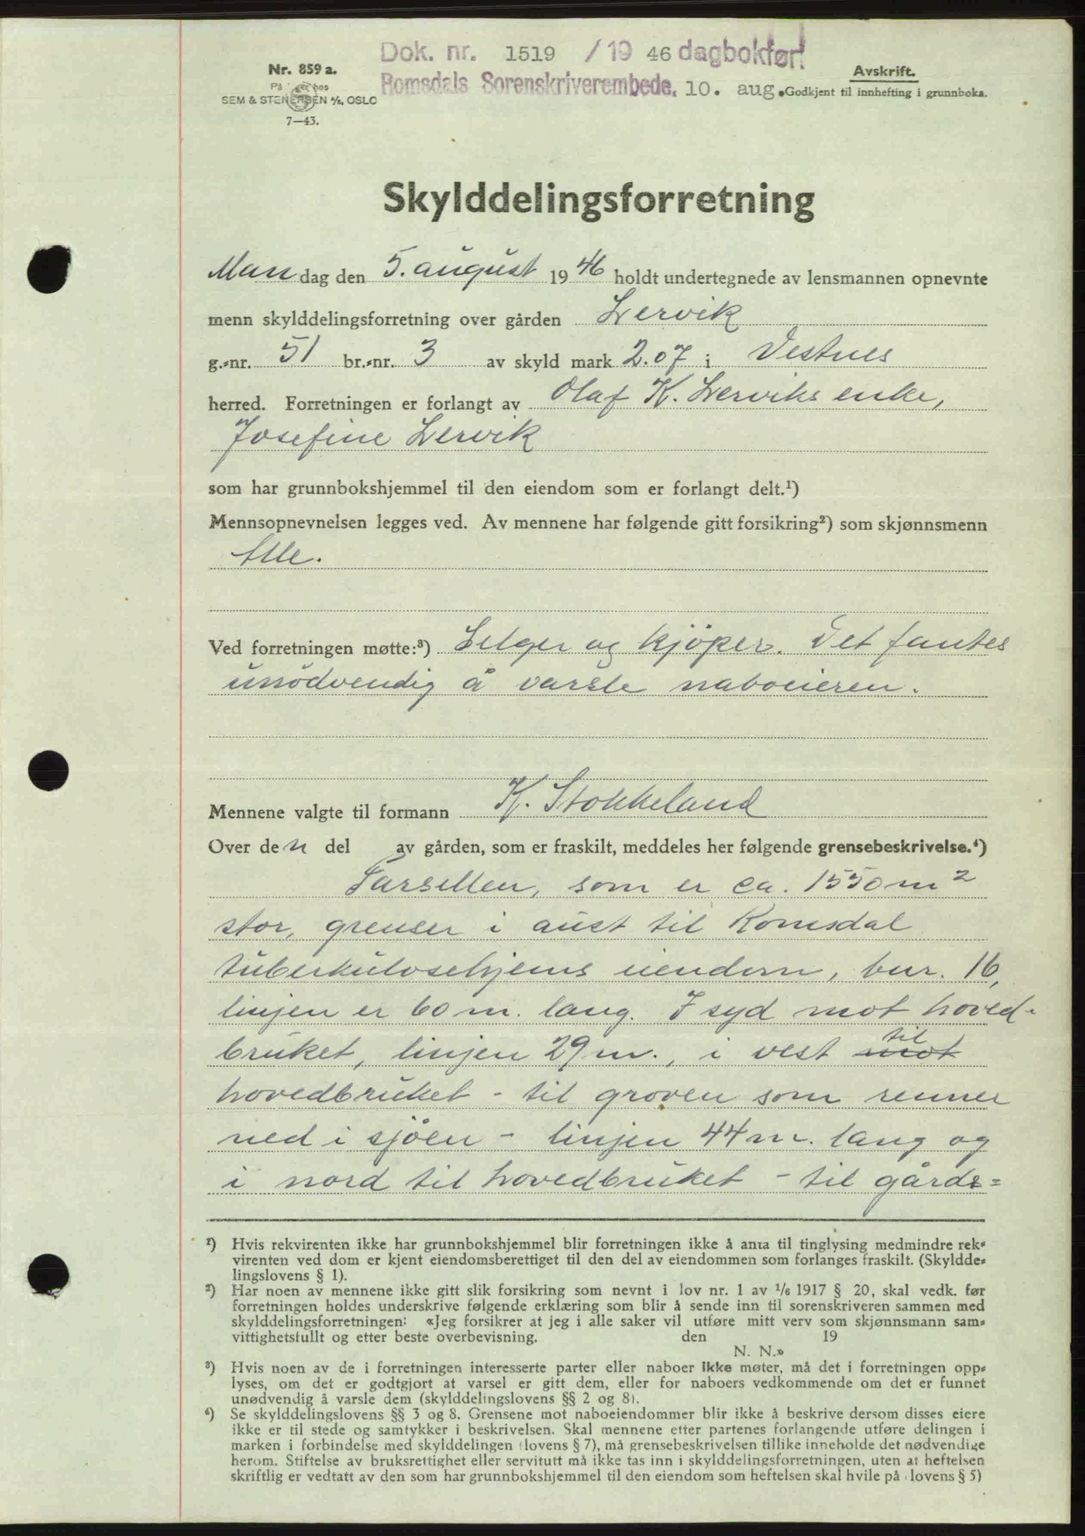 Dok. nr. 1519 / 19 46 dagbokført
Romsdals Sorenskriverembede, 10. aug.
Nr. 859 a.
På lager hos
SEM & STENERSEN A/S, OSLO
7—43.
Avskrift.
Godkjent til innhefting i grunnboka.
Skylddelingsforretning
Man dag den 5. august 19 46 holdt undertegnede av lensmannen opnevnte
menn skylddelingsforretning over gården Lervik
g.-nr. 51 br.-nr. 3 av skyld mark 2.07 i Vestnes
herred. Forretningen er forlangt av Olaf K. Lerviks enke,
Josefine Lervik
som har grunnbokshjemmel til den eiendom som er forlangt delt.¹)
Mennsopnevnelsen legges ved. Av mennene har følgende gitt forsikring²) som skjønnsmenn
Alle.
Ved forretningen møtte:³) Selger og kjöper. Det fantes
unödvendig å varsle naboeieren.
Mennene valgte til formann K. Stokkeland
Over den del av gården, som er fraskilt, meddeles her følgende grensebeskrivelse.⁴)
Parsellen, som er ca. 1550 m²
stor, grenser i aust til Romsdal
tuberkulosehjems eiendom, bnr. 16,
linjen er 60 m. lang. I syd mot hoved-
bruket, linjen 29 m., i vest mot til
hovedbruket - til groven som renner
ned i sjöen - linjen 44 m. lang og
i nord til hovedbruket - til gårds=
¹) Hvis rekvirenten ikke har grunnbokshjemmel blir forretningen ikke å anta til tinglysing medmindre rek-
virenten ved dom er kjent eiendomsberettiget til den del av eiendommen som forlanges fraskilt. (Skyldde-
lingslovens § 1).
²) Har noen av mennene ikke gitt slik forsikring som nevnt i lov nr. 1 av 1/6 1917 § 20, skal vedk. før
forretningen holdes underskrive følgende erklæring som blir å sende inn til sorenskriveren sammen med
skylddelingsforretningen: «Jeg forsikrer at jeg i alle saker vil utføre mitt verv som skjønnsmann sam-
vittighetsfullt og etter beste overbevisning. den 19
N. N.»
³) Hvis noen av de i forretningen interesserte parter eller naboer ikke møter, må det i forretningen opp-
lyses, om det er godtgjort at varsel er gitt dem, eller for naboers vedkommende om det er funnet
unødvendig å varsle dem (skylddelingslovens §§ 2 og 8).
⁴) Se skylddelingslovens §§ 3 og 8. Grensene mot naboeiendommer blir ikke å beskrive dersom disses eiere
ikke er til stede og samtykker i beskrivelsen. Skal mennene etter partenes forlangende utføre delingen i
marken i forbindelse med skylddelingen (lovens § 7), må grensebeskrivelsen tillike inneholde det nødvendige
herom. Stiftelse av bruksrettighet eller servitutt må ikke tas inn i skylddelingsforretningen, uten at heftelsen
skriftlig er vedtatt av den som har grunnbokshjemmel til den eiendom som heftelsen skal hvile på (lovens § 5)